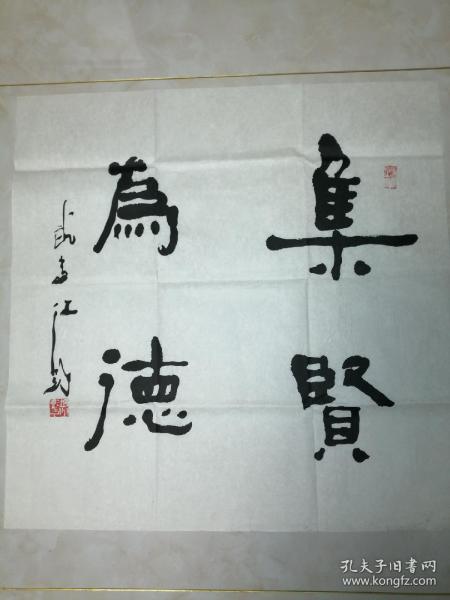 集賢
為德
孔夫子旧书网
www.kongfz.com